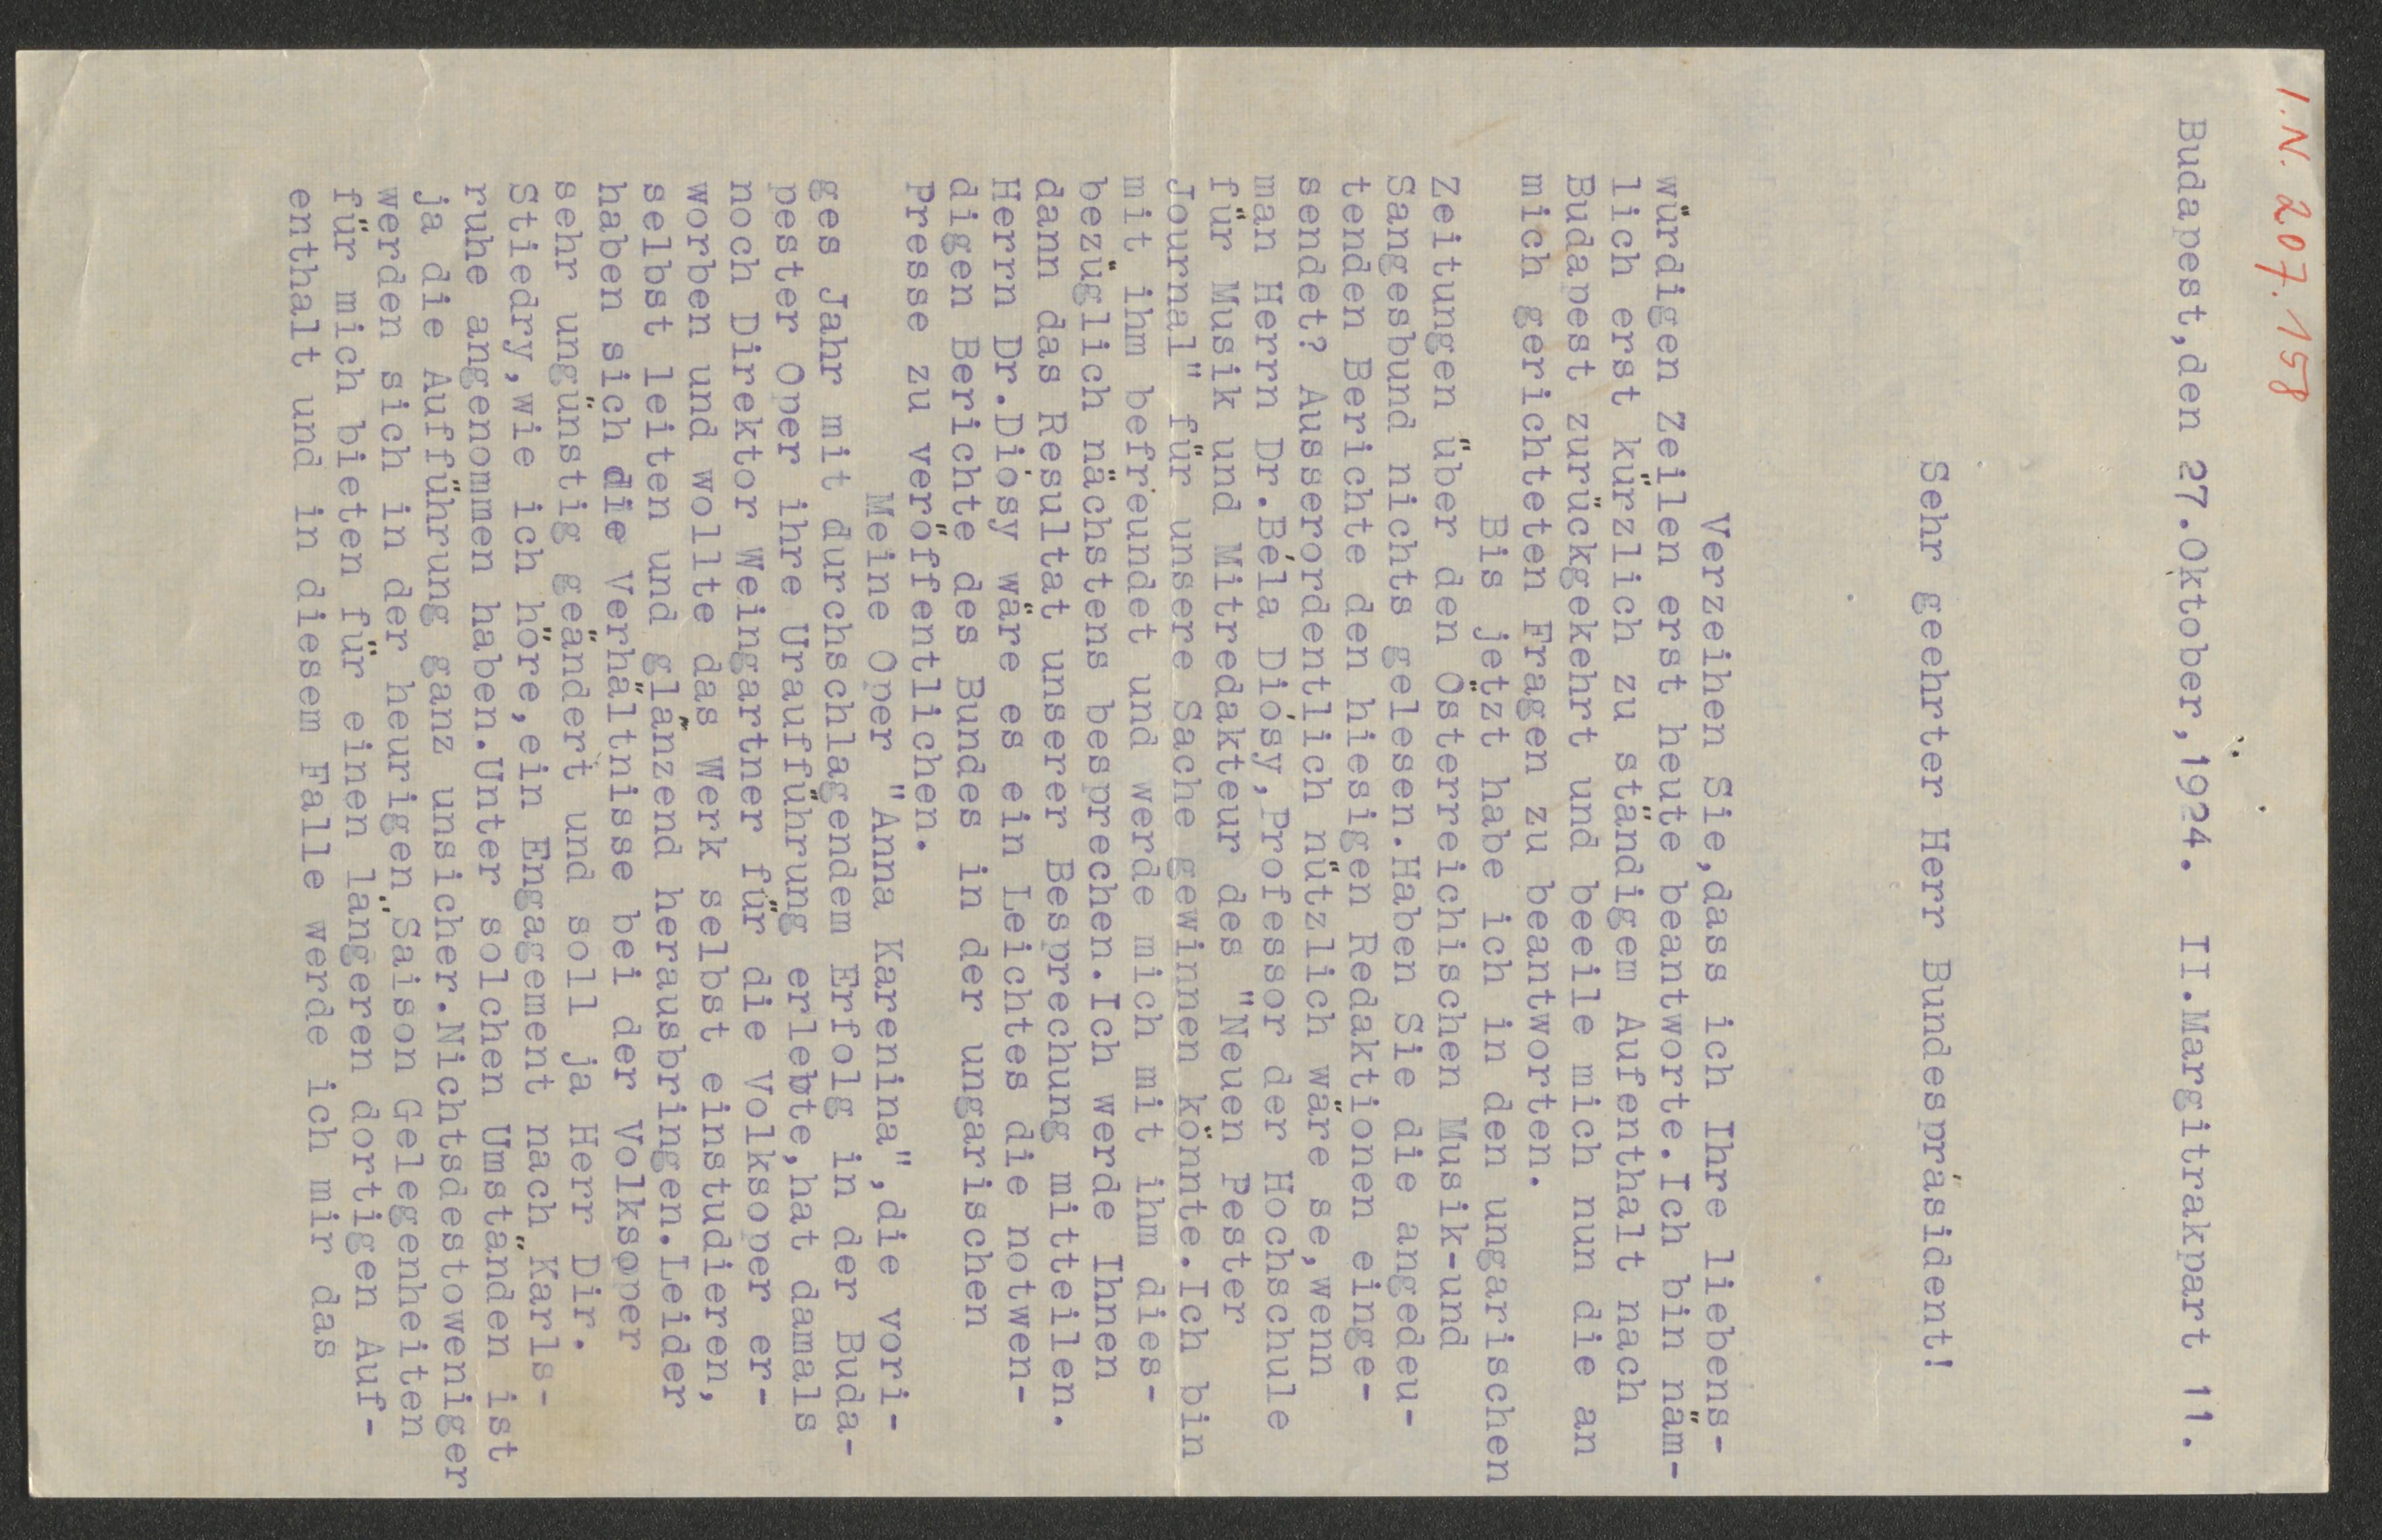 I.N. 207.158
Budapest,den 27.Oktober,1924.  II.Margitrakpart 11.
Sehr geehrter Herr Bundespräsident!
Verzeihen Sie,dass ich Ihre liebens-
würdigen Zeilen erst heute beantworte.Ich bin näm-
lich erst kürzlich zu ständigem Aufenthalt nach
Budapest zurückgekehrt und beeile mich nun die an
mich gerichteten Fragen zu beantworten.
Bis jetzt habe ich in den ungarischen
Zeitungen über den Österreichischen Musik-und
Sangesbund nichts gelesen.Haben Sie die angedeu-
tenden Berichte den hiesigen Redaktionen einge-
sendet? Ausserordentlich nützlich wäre se,wenn
man Herrn Dr.Béla Diósy,Professor der Hochschule
für Musik und Mitredakteur des "Neuen Pester
Journal" für unsere Sache gewinnen könnte.Ich bin
mit ihm befreundet und werde mich mit ihm dies-
bezüglich nächstens besprechen.Ich werde Ihnen
dann das Resultat unserer Besprechung mitteilen.
Herrn Dr.Diósy wäre es ein Leichtes die notwen-
digen Berichte des Bundes in der ungarischen
Presse zu veröffentlichen.
Meine Oper "Anna Karenina",die vori-
ges Jahr mit durchschlagendem Erfolg in der Buda-
pester Oper ihre Uraufführung erlebte,hat damals
noch Direktor Weingartner für die Volksoper er-
worben und wollte das Werk selbst einstudieren,
selbst leiten und glänzend herausbringen.Leider
haben sich die Verhältnisse bei der Volksoper
sehr ungünstig geändert und soll ja Herr Dir.
Stiedry,wie ich höre,ein Engagement nach Karls-
ruhe angenommen haben.Unter solchen Umständen ist
ja die Aufführung ganz unsicher.Nichtsdestoweniger
werden sich in der heurigen Saison Gelegenheiten
für mich bieten für einen längeren dortigen Auf-
enthalt und in diesem Falle werde ich mir das